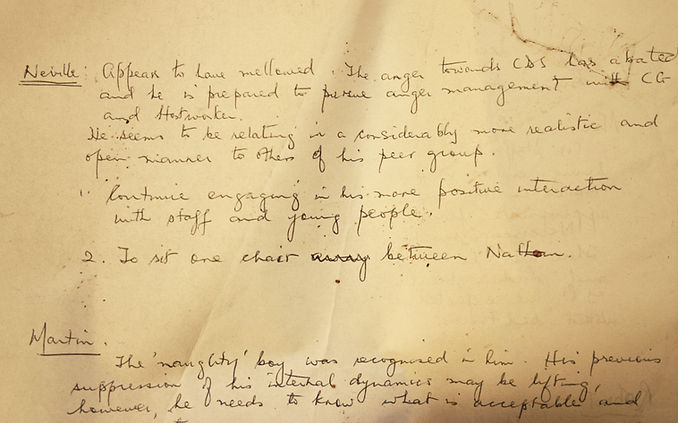 Neville: Appears to have mellowed. The anger towards CDS has abated
and he is prepared to pursue anger management with CG
and Hostworker.
He seems to be relating in a considerably more realistic and
open manner to others of his peer group.
1. Continue engaging in his more positive interaction
with staff and young people.
2. To sit one chair away between Nathan.
Martin.
The 'naughty' boy was recognised in him. His previous
suppression of his internal dynamics may be lifting,
however, he needs to know what is acceptable and